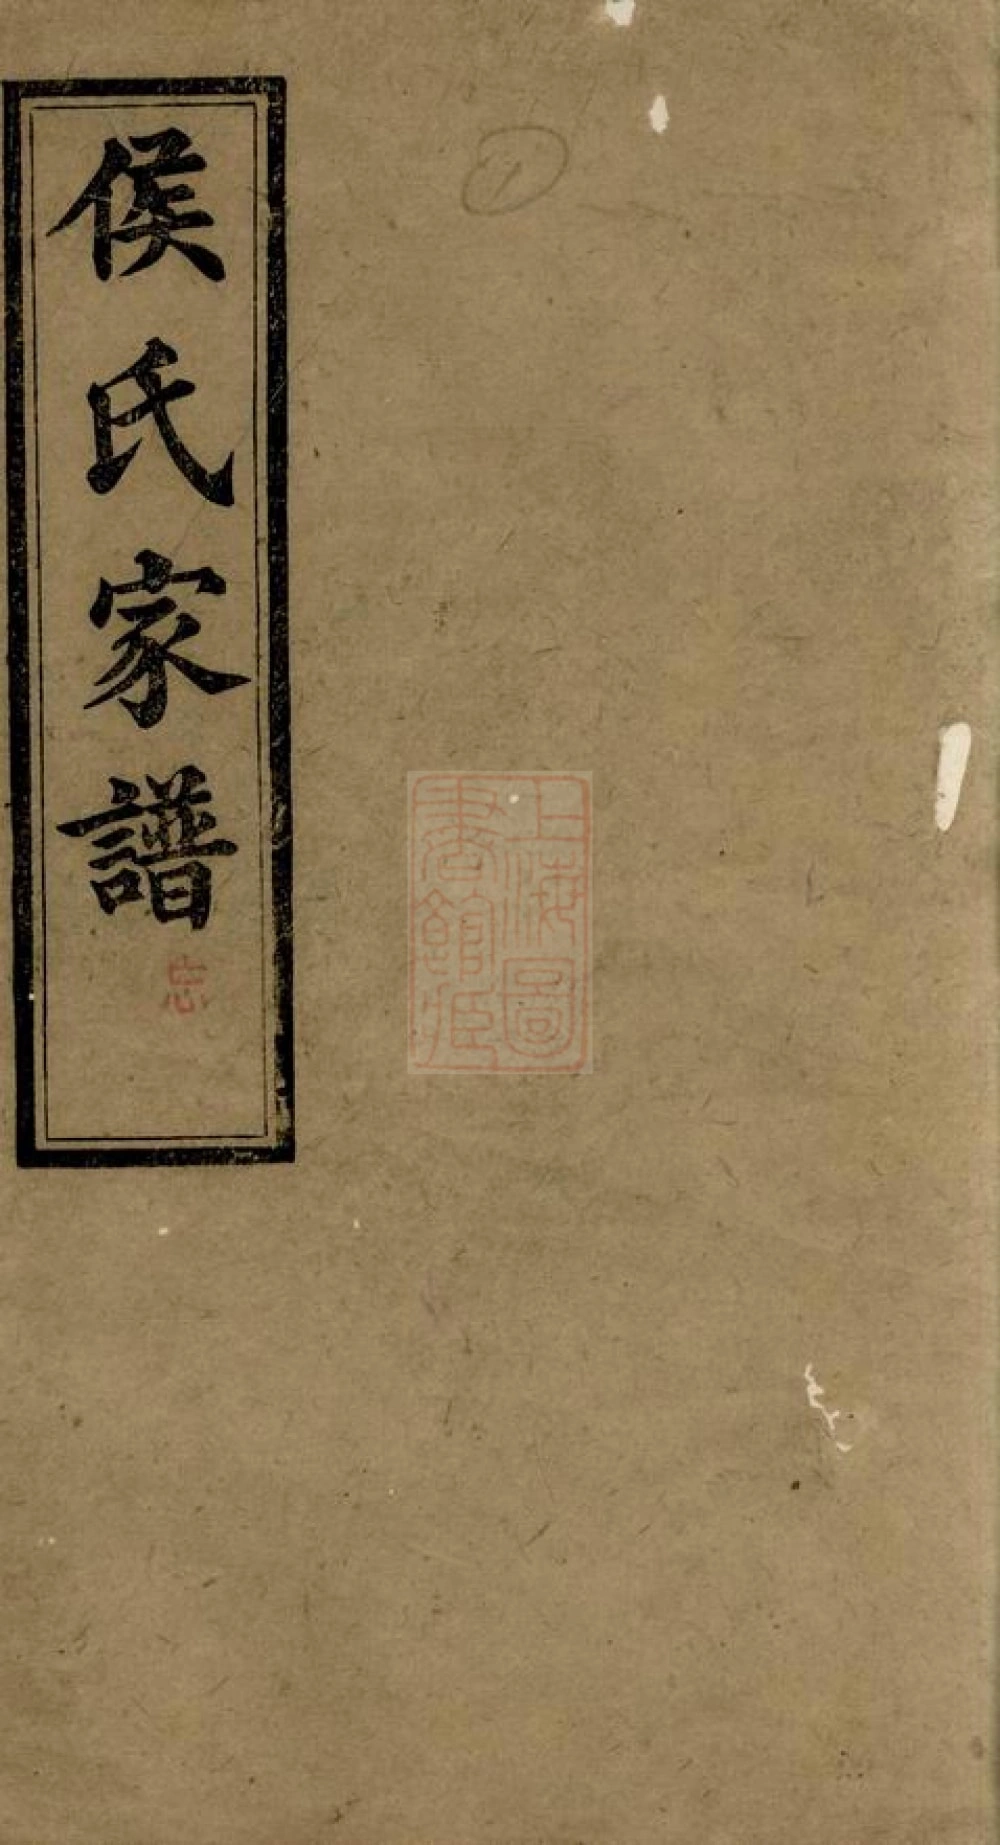 侯氏家譜
忠
1
上海圖
書館藏